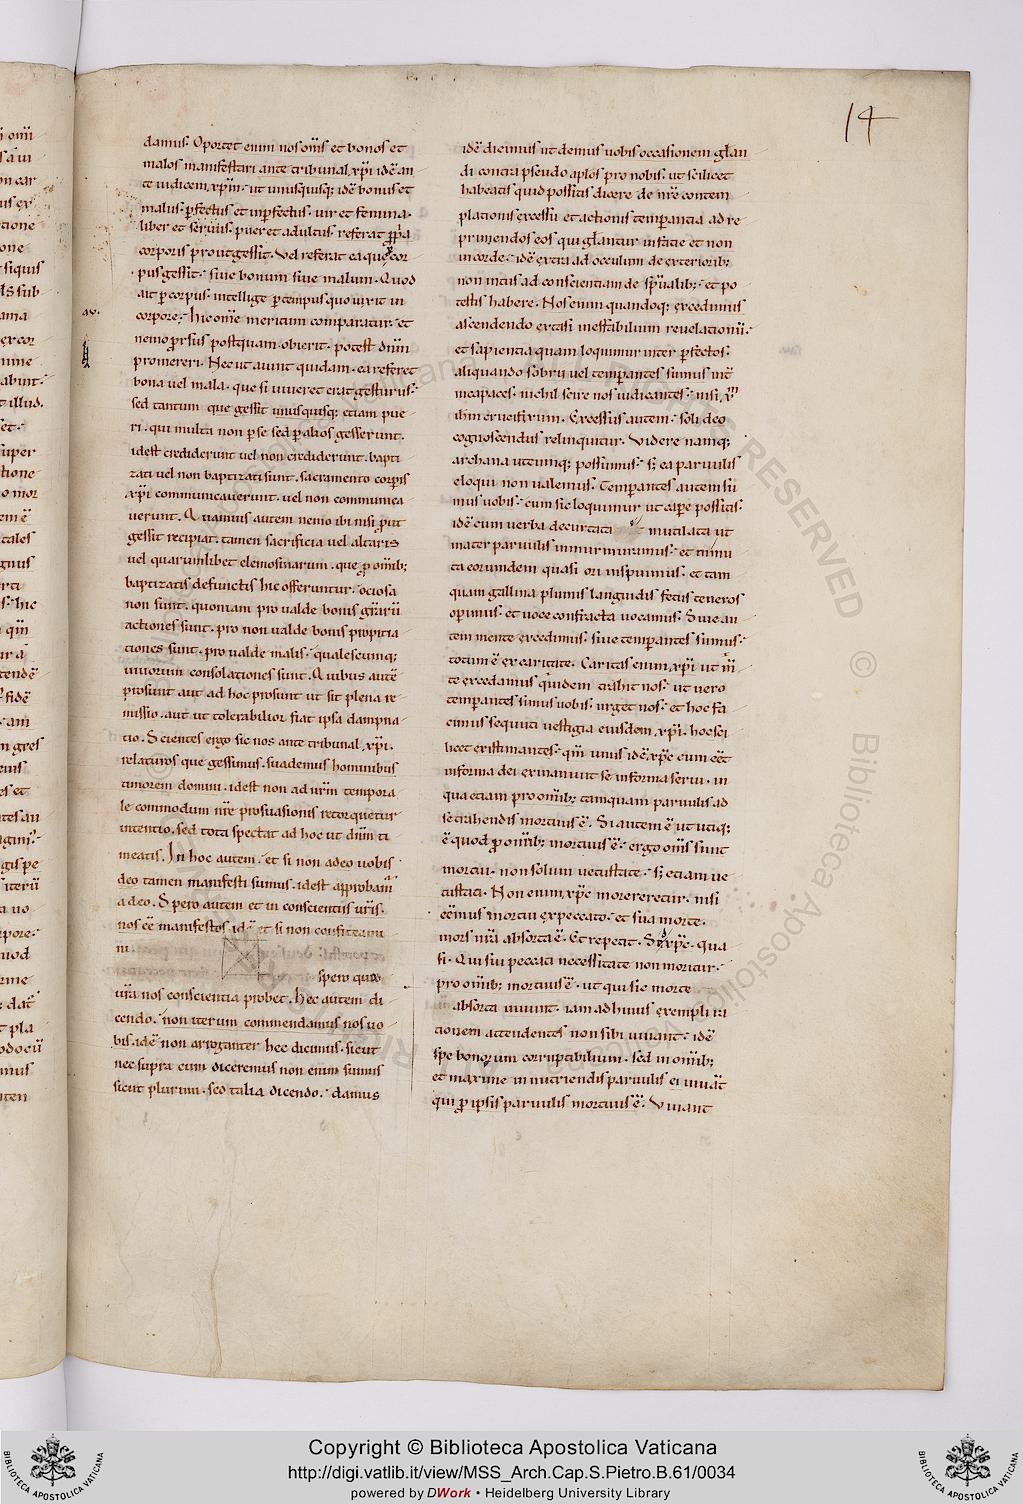 14
damus. Oportet enim nos om̅s et bonos et
malos manifestari ante tribunal xp̅i idē an
te iudicem xp̅m. ut unusquisq; idē bonus et
malus. ꝑfectus et inꝑfectus. uir et femina.
liber et seruus. puer et adultus. referat ꝓp̅a
corporis prout gessit. Vel referat ea quę cor
pus gessit. siue bonum siue malum. Quod
ait ꝑ corpus. intellige ꝑ tempus quo uixit in
corpore. hic om̅e meritum comparatur. et
nemo ꝓrsus postquam obierit. potest dn̅m
promereri. Hec ut aiunt quidam. ea referet
bona uel mala. que si uiueret erat gesturus.
sed tantum que gessit unusquisq; etiam pue
ri. qui multa non ꝑ se sed ꝑ alios gesserunt.
idest crediderunt uel non crediderunt. bapti
zati uel non baptizati sunt. sacramento corꝑis
xp̅i communicauerunt. uel non communica
uerunt. Quamuis autem nemo ibi nisi ꝓut
gessit recipiat. tamen sacrificia uel altaris
uel quarumlibet elemosinarum. que ꝓ om̅ib;
baptizatis defunctis hic offeruntur. ociosa
non sunt. quoniam pro ualde bonis gr̅arū
actiones sunt. pro non ualde bonis propitia
tiones sunt. pro ualde malis. qualescumq;
uiuorum consolationes sunt. Quibus autē
prosunt aut ad hoc prosunt ut sit plena re
missio. aut ut tolerabilior fiat ipsa dampna
tio. Scientes ergo sic nos ante tribunal xp̅i.
relaturos que gessimus. suademus hominibus
timorem domini. idest non ad ur̅m tempora
le commodum nr̅e prosuasionis retorquetur
intentio. sed tota spectat ad hoc ut dn̅m ti
meatis. In hoc autem. et si non adeo uobis
deo tamen manifesti sumus. idest approbam̅
a deo. Spero autem et in conscientiis ur̅is.
nos ēe manifestos idē et si non confiteami
ni.
spero quod
ur̅a nos conscientia probet. hec autem di
cendo. non iterum commendamus nos uo
bis. idē non arroganter hec dicimus. sicut
nec supra cum diceremus non enim sumus
sicut plurimi. sed talia dicendo. damus
idē dicimus ut demus uobis occasionem gl̅an
di contra pseudo apl̅os pro nobis. ut scilicet
habeatis quid possitis dicere de nr̅e contem
plationis excessu et actionis temperantia ad re
primendos eos qui gl̅antur in facie et non
in corde. idē extra ad occulum de exteriorib;
non intus ad conscientiam de sp̅ualib; et po
testis habere. Nos enim quandoq; excedimus
ascendendo extasi inestabilium reuelationū.
et sapientia quam loquimur inter ꝑfectos.
aliquando sobrii uel temꝑantes sumus mē
incapaces. nichil scire nos iudicantes. nisi x̅m
ih̅m crucifixum. Excessus autem. soli deo
cognoscendus relinquitur. Videre namq;
archana utcumq; possumus. s; ea paruulis
eloqui non ualemus. Temꝑantes autem su
mus uobis. cum sic loquimur ut capere possitis.
idē cum uerba decurtata et mutilata ut
mater paruulis inmurmuramus. et minu
ta eorumdem quasi ori inspuimus. et tam
quam gallina plumis languidis fetus teneros
oꝑimus. et uoce confracta uocamus. Siue au
tem mente excedimus. siue temperantes sumus.
totum ē ex caritate. Caritas enim xp̅i ut m̅
te excedamus quidem trahit nos. ut uero
temꝑantes simus uobis. urget nos. et hoc fa
cimus sequuti uestigia eiusdem xp̅i. hoc sci
licet existimantes. qm̅ unus idē xp̅c cum eēt
in forma dei exinaniuit se in forma serui. in
qua etiam pro om̅ib; tamquam paruulis ad
se trahendis mortuus ē. Si autem ē ut utiq;
ē quod ꝓ om̅ib; mortuus ē. ergo om̅s sunt
mortui. non solum uetustate. s; etiam ue
tustati. Non enim xp̅c moreretur. nisi
eēmus mortui ex peccato. et sua morte.
mors nr̅a absorta ē. Et repetit. Si xp̅c. qua
si. Qui sui peccati necessitate non moritur.
pro om̅ib; mortuus ē. ut qui sic morte
absorta uiuunt. iam ad huius exempli ra
tionem attendentes non sibi uiuant. idē
spe bonorum corruptibilium. sed in om̅ib;
et maxime in nutriendis paruulis ei uiuāt
qui ꝓ ipsis paruulis mortuus ē. Viuant
Copyright © Biblioteca Apostolica Vaticana
http://digi.vatlib.it/view/MSS_Arch.Cap.S.Pietro.B.61/0034
powered by DWork • Heidelberg University Library